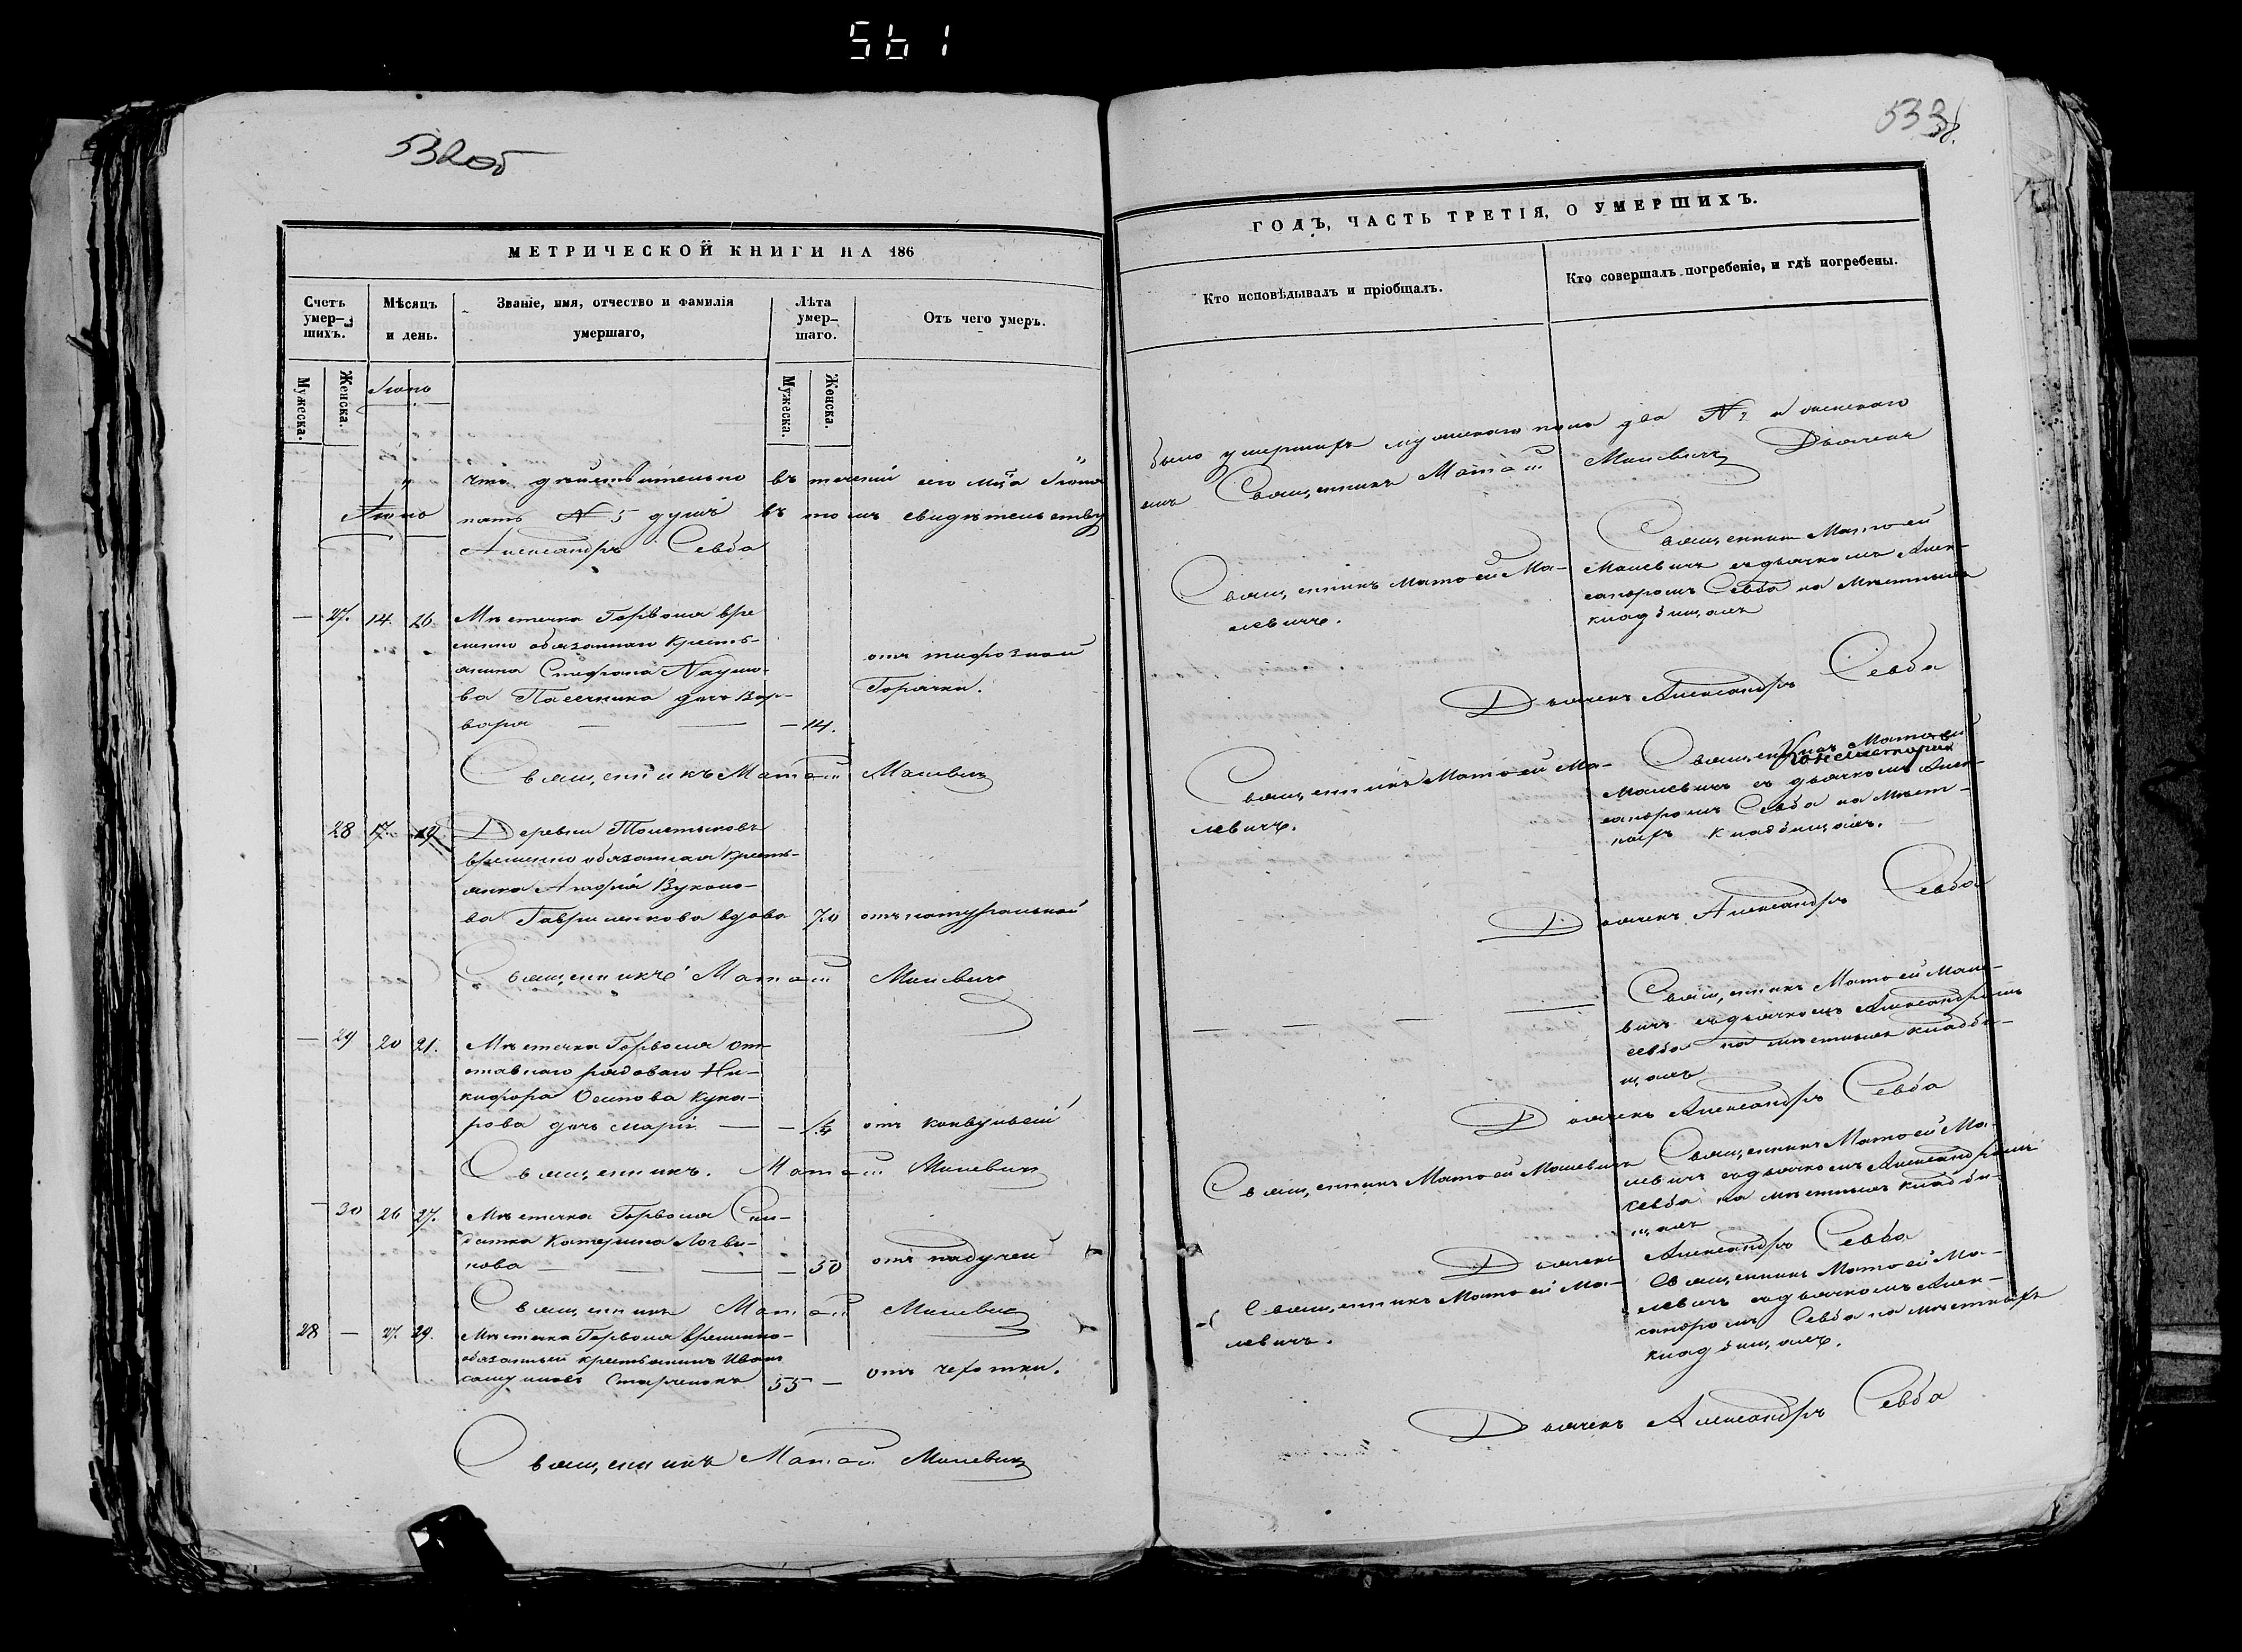 561
532об
МЕТРИЧЕСКОЙ КНИГИ НА 186
Счетъ умер-шихъ.
Мѣсяцъ и день.
Званіе, имя, отчество и фамилія умершаго,
Лѣта умер-шаго.
Отъ чего умеръ.
Мужеска.
Женска.
Мужеска.
Женска.
что дѣйствительно въ теченій сего мца
пять № 5 душъ въ томъ свидѣтельству
Александръ Севба
27. 14. 16. Мѣстечка Горвола вре
менно обязаннаго кресть-
янина Стефана Наумо-
ва Пасечника дочь Вар-
вара — — — 14.
отъ тифозной
Горячки.
Священникъ Матѳей Малевич
28 17. 19. Деревни
временно обязанная кресть-
янка
ва вдова 70 отъ натуральной
Священникъ Матѳей Малевич
— 29 20 21. Мѣстечка Горвола от
ставнаго рядоваго Ни-
кифора Осипова
рова дочь — — отъ конвульсій
Священникъ. Матѳей Малевич
— 30 26 27. Мѣстечка Горвола
датка Катерина Логви-
нова — — — 50 отъ падучей
Священникъ Матѳей Малевич
28 — 27. 29. Мѣстечка Горвола временно-
обязанный крестьянинъ Иванъ
55 — отъ чехотки.
Священникъ Матѳей Малевич
533
ГОДЪ, ЧАСТЬ ТРЕТІЯ, О УМЕРШИХЪ.
Кто исповѣдывалъ и пріобщалъ.
Кто совершалъ погребеніе, и гдѣ погребены.
было умершихъ мужескаго пола два № 2 и женскаго
Священникъ Матѳей Малевич Дьячекъ
Священникъ Матѳей Ма-
левичъ.
Священник Матѳей
Малевичъ съ дьячкомъ Алек-
сандромъ Севба на мѣстныхъ
кладбищахъ
Дьячекъ Александръ Севба
Священникъ Матѳей Ма-
левичъ.
Священникъ Матѳей
Малевичъ съ дьячкомъ Алек-
сандромъ Севба на мѣст-
ныхъ кладбищахъ.
Дьячекъ Александръ Севба
— — — —
Священникъ Матѳей Мале-
вичъ съ дьячкомъ Александромъ
Севба на мѣстныхъ кладби-
щахъ
Дьячекъ Александръ Севба
Священникъ Матѳей Малевичъ
Священникъ Матѳей Ма-
левичъ съ дьячкомъ Александромъ
Севба на мѣстныхъ кладби-
щахъ
Дьячекъ Александръ Севба
Священникъ Матѳей Ма-
левичъ.
Священникъ Матѳей Ма-
левичъ съ дьячкомъ Алек-
сандромъ Севба на мѣстныхъ
кладбищахъ.
Дьячекъ Александръ Севба